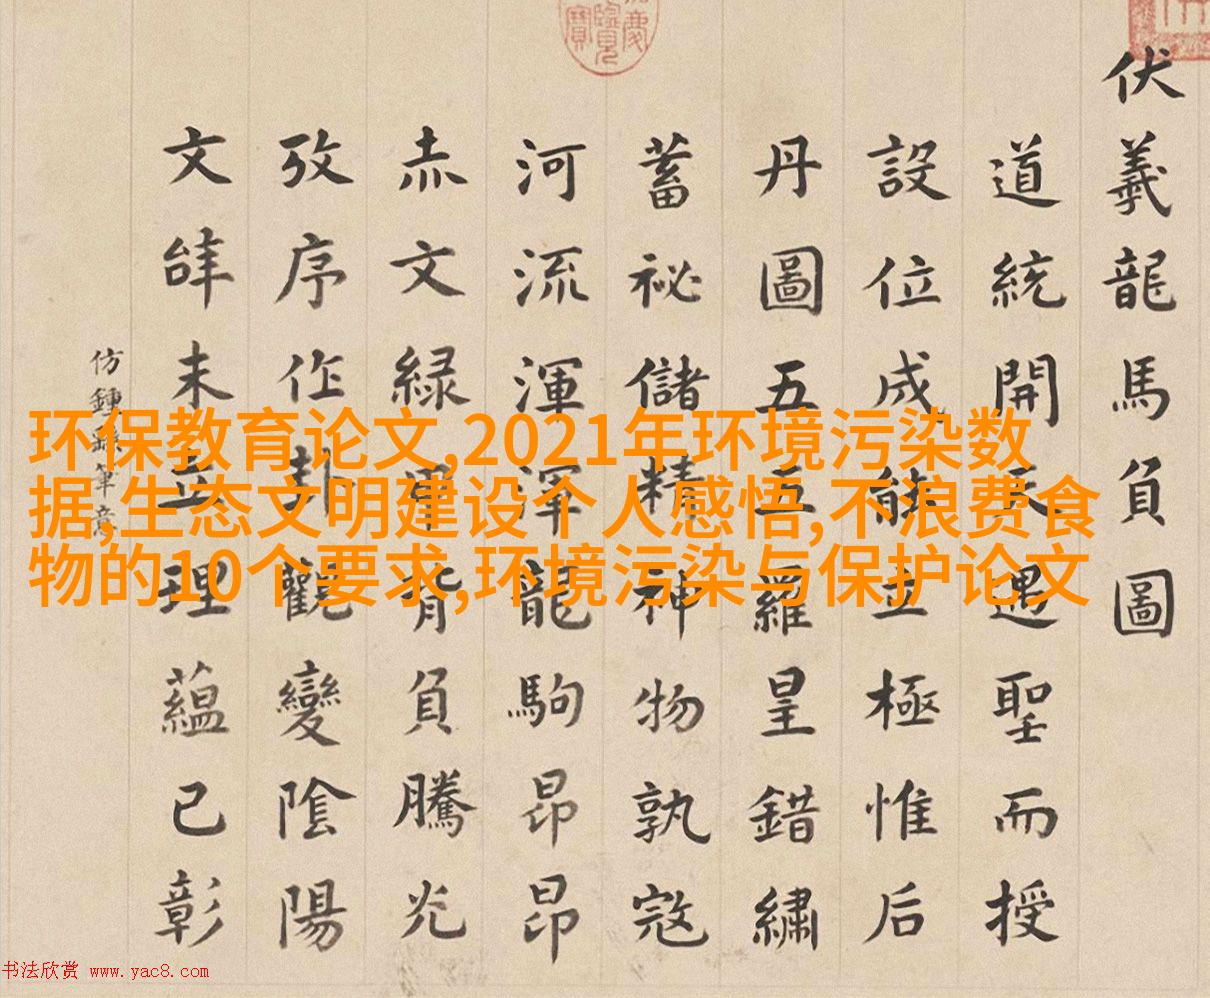 伏羲龍馬負圖
道統開天遇聖而授
設位成能立極惟后
丹圖五五羅皇錯繡
蓄祕儲精神物孰寇
河流渾渾龍駒昂昂
赤文緑甲背負騰光
攷序作卦觀變陰陽
文辝未立理蘊已彰
仿鍾繇筆意
环保教育论文,2021年环境污染数
据,生态文明建设个人感悟,不浪费食
物的10个要求,环境污染与保护论文
书法欣赏 www.yac8.com